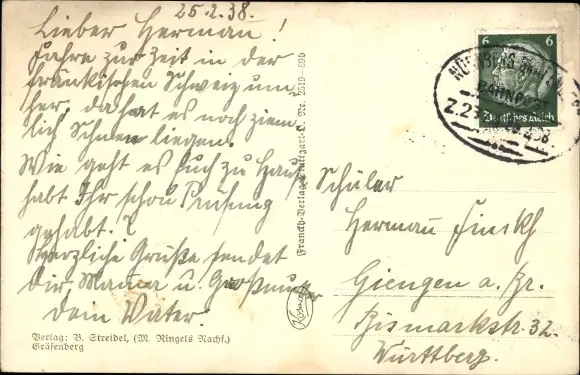 25.2.38.
Lieber Herman!
Fahre zur Zeit in der
fränkischen Schweiz um-
her, da hat es noch ziem-
lich Schnee liegen.
Wie geht es Euch zu Haus
habt Ihr schon Prüfung
gehabt?
Herzliche Grüße sendet
Dir, Mama u. Großmutter
Dein Vater.
Verlag: B. Streidel, (M. Ringels Nachf.)
Gräfenberg
Franckh-Verlag Stuttgart-O. Nr. 2519-696
Kosmos
6 6
Deutsches Reich
NÜRNBERG
BAHNPOST
Z.2
Schüler
Herman
Giengen a. Br.
Bismarckstr. 32.
Württberg.